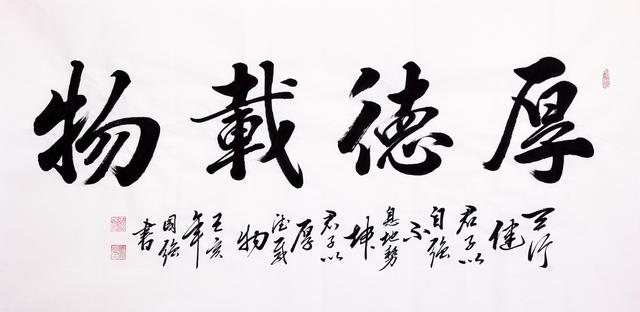 厚德載物
天行
健
君子以
自強
不
息地勢
坤
君子以
厚
德載
物
亥
年
國強
書